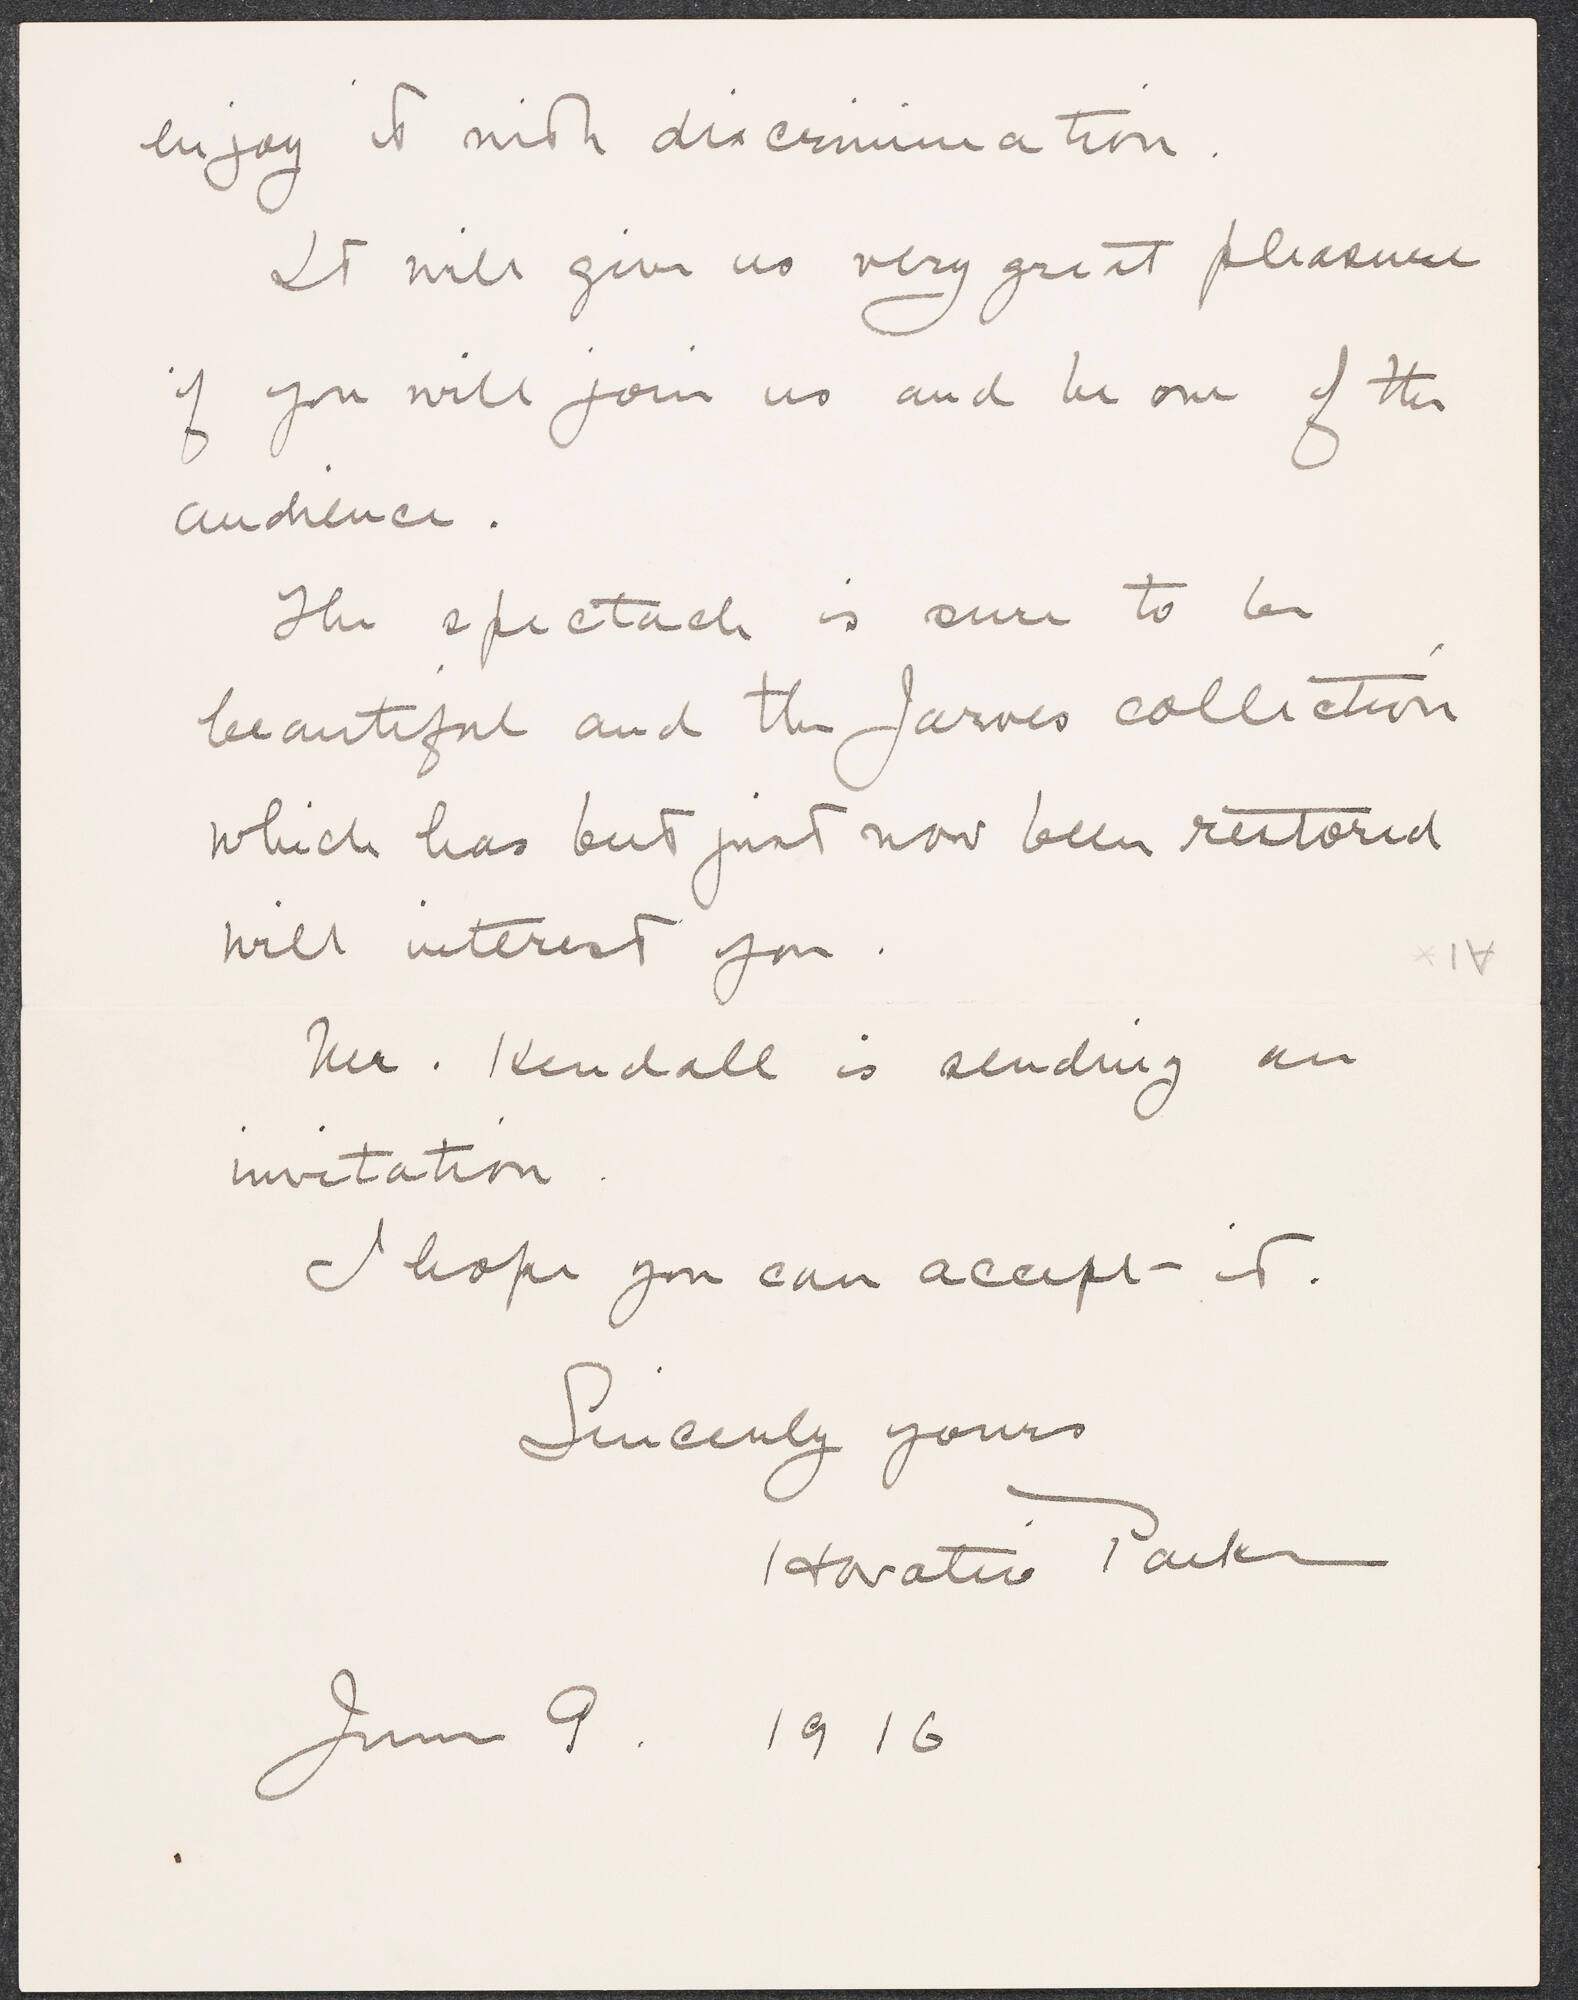 enjoy it with discrimination.
It will give us very great pleasure
if you will join us and be one of the
audience.
The spectacle is sure to be
beautiful and the Jarves collection
which has but just now been restored
will interest you.
A1*
Mr. Kendall is sending an
invitation.
I hope you can accept it.
Sincerely yours
Horatio Parker
June 9. 1916